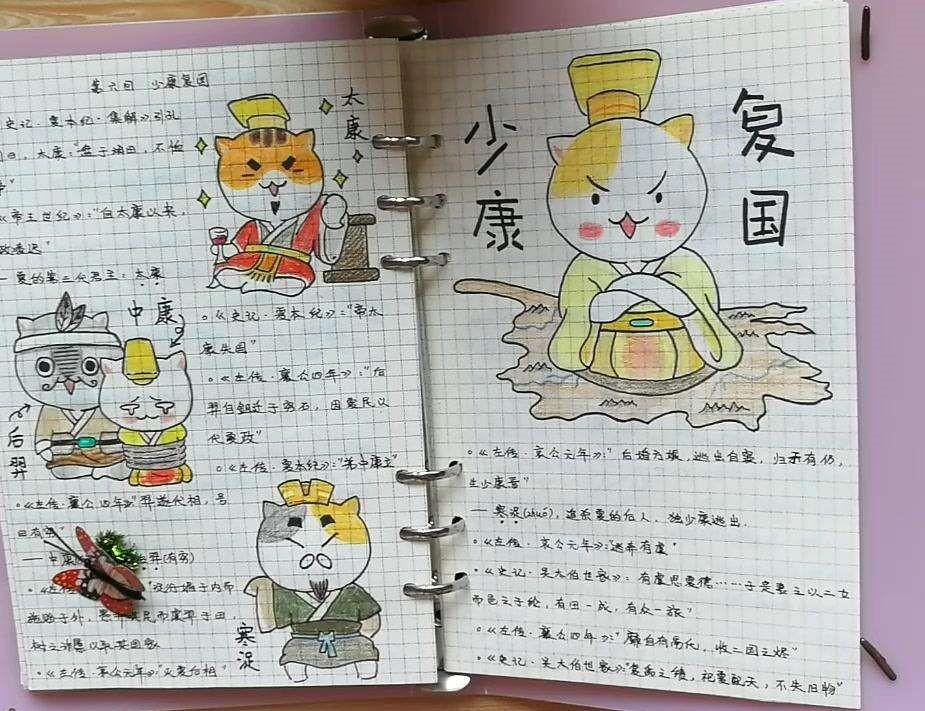 第六回 少康复国
史记·夏本纪·集解》引孔
曰，太康："盘于游田，不恤
太康
《帝王世纪》："自太康以来，
政凌迟"
— 夏的第三代君主：太康
中康
后羿
。《史记·夏本纪》："帝太
康失国"
。《左传·襄公四年》："后
羿自鉏迁于穷石，因夏民以
代夏政"
。《左传·夏本纪》："弟中康立"
。《左传·襄公四年》"羿遂代相，号
曰有
(有穷)
。《左
内而
施赂于外，
民而虞羿于田，
树之诈慝以取其国家
。《左传·哀公元年》"
寒浞
少康
复国
。《左传·哀公元年》："后缗方娠，逃出自窦，归于有仍，
生少康焉"
— 寒浞(zhuó)，追杀夏的后人，独少康逃出.
。《左传·哀公元年》："逃奔有虞"
。《史记·吴大伯世家》：有虞思夏德……于是妻之以二女
而邑之于纶，有田一成，有众一旅"
。《左传·襄公四年》："靡自有鬲氏，收二国之烬"
。《史记·吴大伯世家》："复禹之绩，祀夏配天，不失旧物"